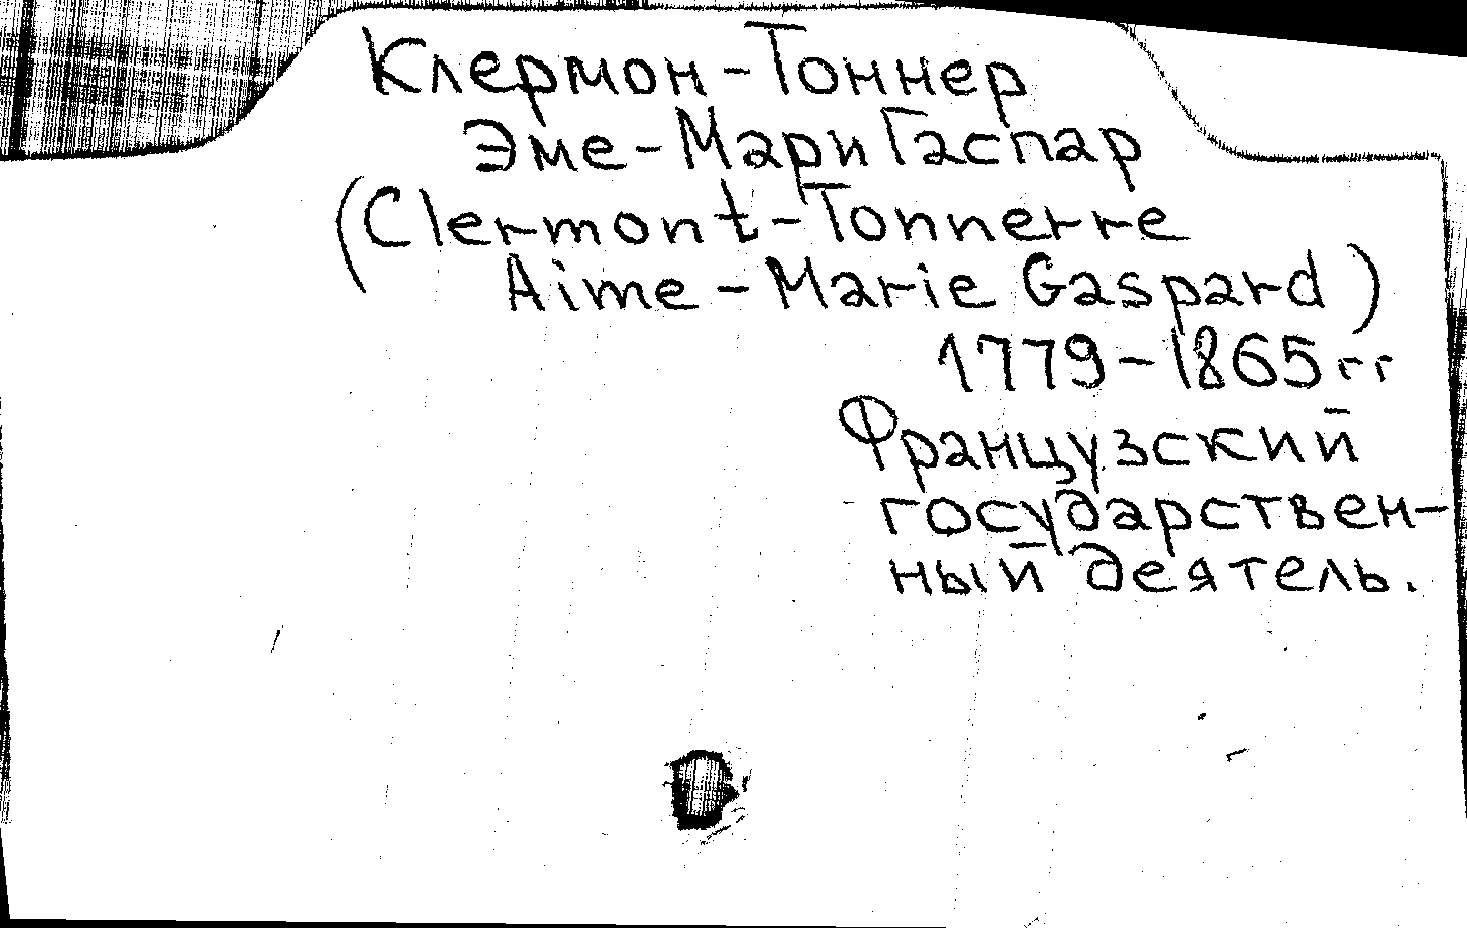 Клермон-Тоннер
Эме-Мари Гаспар
(Clermont-Tonnerre
Aime-Marie Gaspard)
1779-1865 гг
Французский
государствен-
ный деятель.